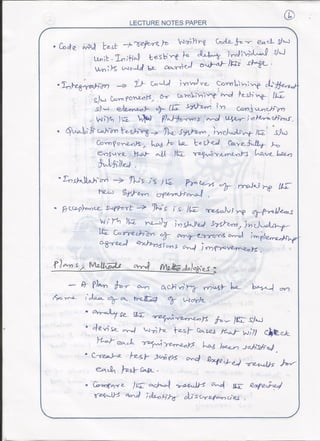 LECTURE NOTES PAPER
• Code and test → refers to writing code for each s/w
unit. Initial testing to debug individual s/w
units would be carried out at this stage.
• Integration → It could involve combining different
s/w components, or combining and testing the
s/w element of the system in conjunction
with the h/w platforms and user interactions.
• Qualification testing → The system, including its s/w
components, has to be tested carefully to
ensure that all the requirements have been
fulfilled.
• Installation → This is the process of making the
new system operational.
• Acceptance support → This is the resolving of problems
with the newly installed system, including
the correction of any errors and implementing
agreed extensions and improvements.
Plans, Methods and Methodologies:
— A plan for an activity must be based on
some idea of a method of work.
• analyse the requirements for the s/w
• devise and write test cases that will check
that each requirement has been satisfied.
• create test scripts and expected results for
each test case.
• Compare the actual results and the expected
results and identify discrepancies.